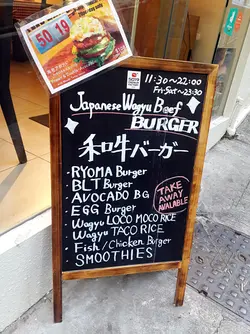 50 19
11:30~22:00
Fri·Sat~23:30
Japanese Wagyu Beef
BURGER
和牛バーガー
· RYOMA Burger
· BLT Burger
· AVOCADO BG
· EGG Burger
· Wagyu LOCO MOCO RICE
· Wagyu TACO RICE
· Fish/Chicken Burger
· SMOOTHIES
TAKE
AWAY
AVALABLE